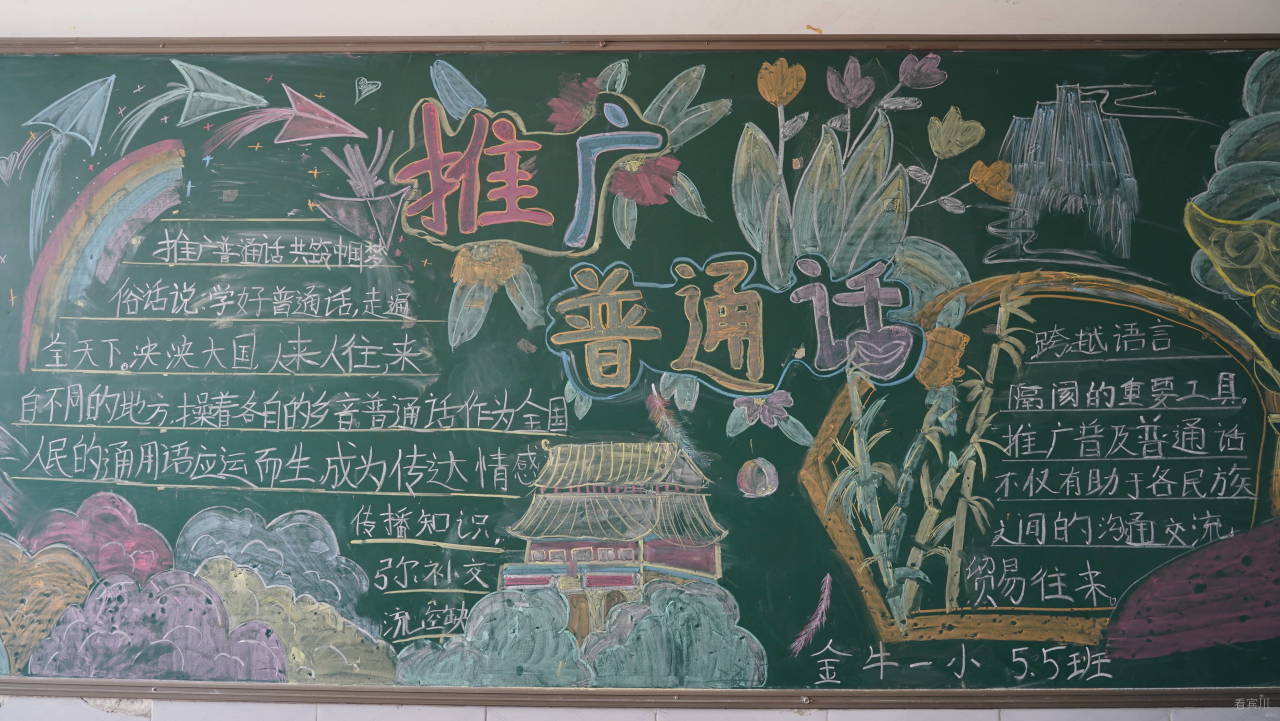 推广
普通话
推广普通话共筑中国梦
俗话说:学好普通话,走遍
全天下。泱泱大国人来人往,来
自不同的地方,操着各自的乡音普通话作为全国
人民的通用语应运而生,成为传达情感
传播知识,
弥补文
流空缺
跨越语言
隔阂的重要工具,
推广普及普通话
不仅有助于各民族
之间的沟通交流,
贸易往来。
金牛一小 5.5班
看宾川